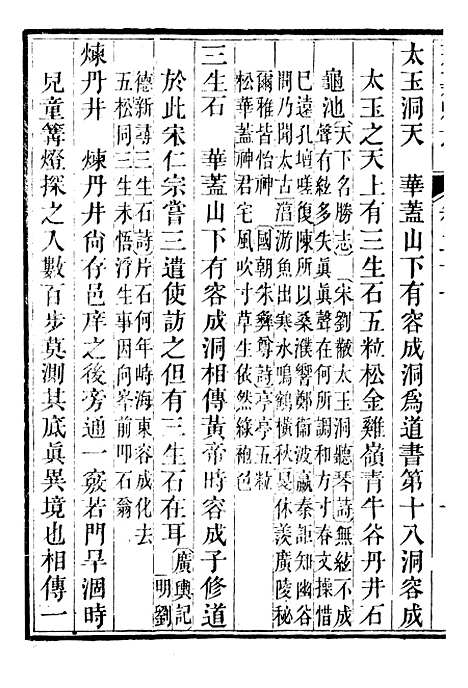 太玉洞天　華蓋山下有容成洞爲道書第十八洞容成
太玉之天上有三生石五粒松金雞嶺靑牛谷丹井石
龜池　天下名勝志　宋劉黻太玉洞聽琴詩無絃不成
聲有絃多失眞眞聲在何所調和方寸春文操惜
巳遠孔壇嗟復陳所以桑濮響鄭衞波嬴秦詎知幽谷
閒乃聞太古游魚出寒水鳴鶴橫秋旻休羨廣陵秘
爾雅皆怡神　國朝朱彝尊詩亭亭五粒
松華蓋神君宅風吹寸草生依然綠袍色
三生石　華蓋山下有容成洞相傳黃帝時容成子修道
於此宋仁宗嘗三遣使訪之但有三生石在耳　廣輿記
明劉
德新尋三生石詩片石何年峙海東容成化去
五松同三生未悟浮生事因向峯前叩石翁
煉丹井　煉丹井尙存邑庠之後旁通一竅若門旱涸時
兒童篝燈探之入數百步莫測其底眞異境也相傳一